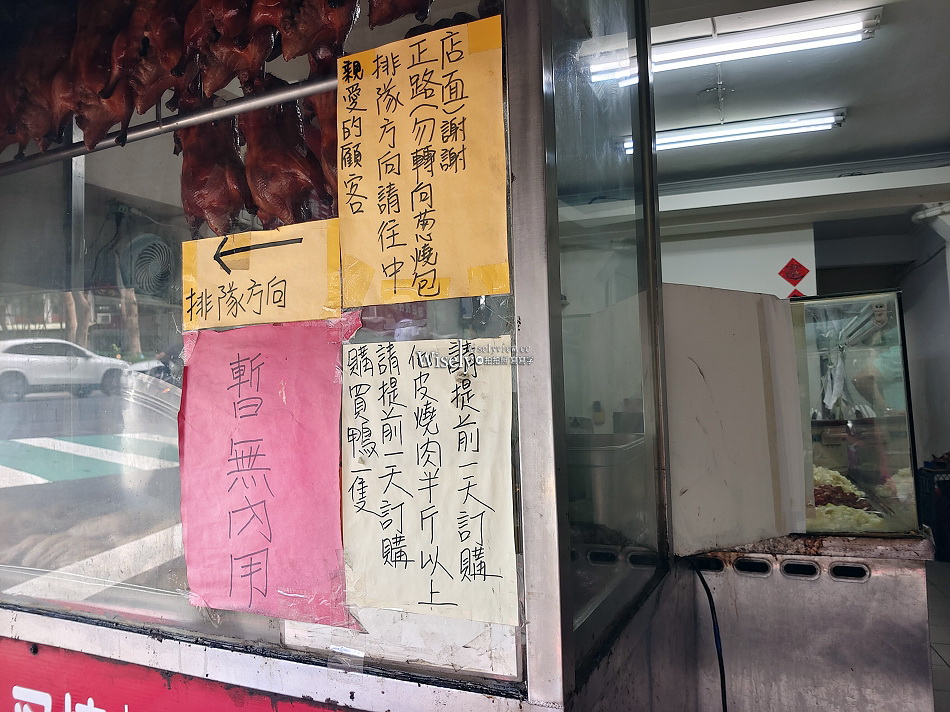 親愛的顧客
排隊方向請往中
正路(勿轉向葱燒包
店面)謝謝
排隊方向
暫無內用
購買鴨一隻
請提前一天訂購
脆皮燒肉半斤以上
請提前一天訂購
Wisely
拍拍照寫寫字